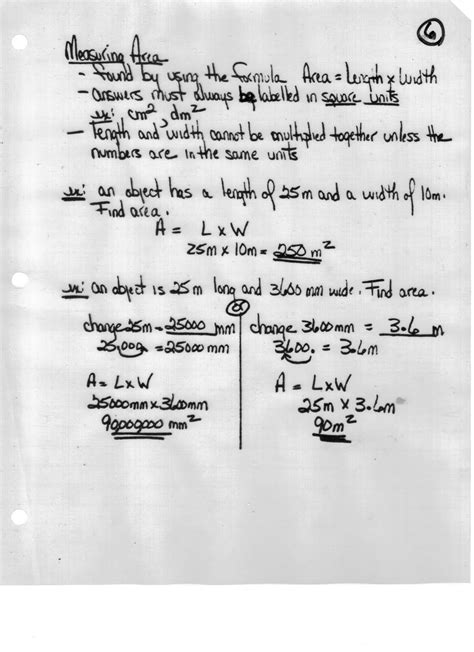 6
Measuring Area
- found by using the formula Area = Length x Width
- answers must always be labelled in square units
ex: cm², dm²
- length and width cannot be multiplied together unless the
numbers are in the same units
ex: an object has a length of 25m and a width of 10m.
Find area.
A = L x W
25m x 10m = 250 m²
ex: an object is 25m long and 3600 mm wide. Find area.
or
change 25m = 25000 mm
25.000 = 25000 mm
A = L x W
25000mm x 3600mm
90000000 mm²
change 3600mm = 3.6 m
3600. = 3.6m
A = L x W
25m x 3.6m
90m²